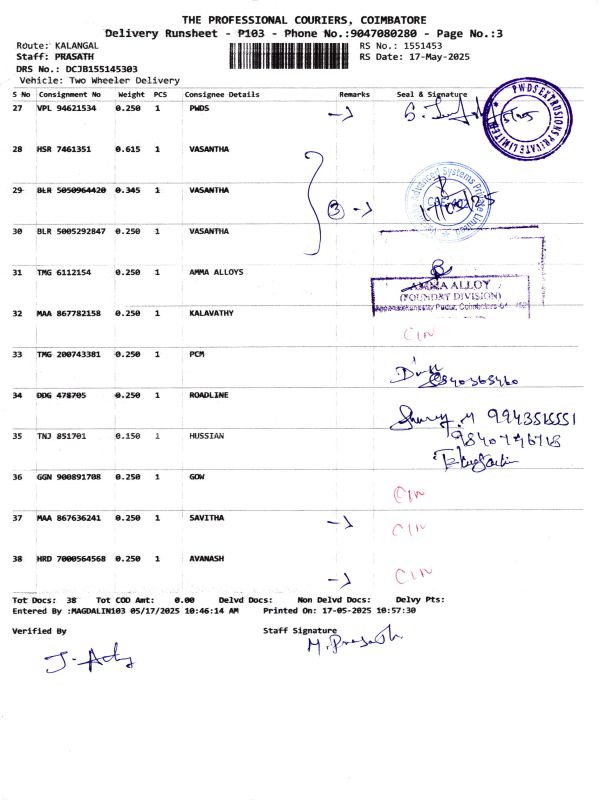 THE PROFESSIONAL COURIERS, COIMBATORE
Delivery Runsheet - P103 - Phone No.:9047080280 - Page No.:3
Route: KALANGAL RS No.: 1551453
Staff: PRASATH RS Date: 17-May-2025
DRS No.: DCJB155145303
Vehicle: Two Wheeler Delivery
S No Consignment No Weight PCS Consignee Details Remarks Seal & Signature
27 VPL 94621534 0.250 1 PWDS
PWDS EXTRUSIONS PRIVATE LIMITED
28 HSR 7461351 0.615 1 VASANTHA
29 BLR 5050964420 0.345 1 VASANTHA 3
Advanced Systems Private Limited
30 BLR 5005292847 0.250 1 VASANTHA
31 TMG 6112154 0.250 1 AMMA ALLOYS
AMMA ALLOY
(FOUNDRY DIVISION)
32 MAA 867782158 0.250 1 KALAVATHY
33 TMG 200743381 0.250 1 PCM
34 DDG 478705 0.250 1 ROADLINE
9943515551
35 TNJ 851701 0.150 1 HUSSIAN
36 GGN 900891708 0.250 1 GOW
37 MAA 867636241 0.250 1 SAVITHA
38 HRD 7000564568 0.250 1 AVANASH
Tot Docs: 38 Tot COD Amt: 0.00 Delvd Docs: Non Delvd Docs: Delvy Pts:
Entered By :MAGDALIN103 05/17/2025 10:46:14 AM Printed On: 17-05-2025 10:57:30
Verified By Staff Signature
M. Prasath.